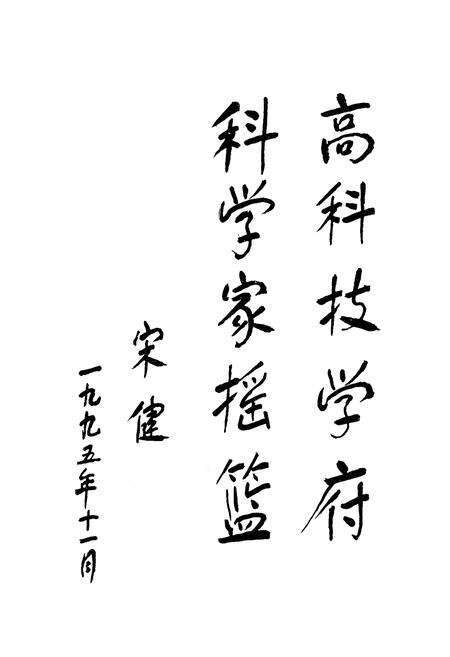 高科技学府
科学家摇篮
宋健
一九九五年十一月